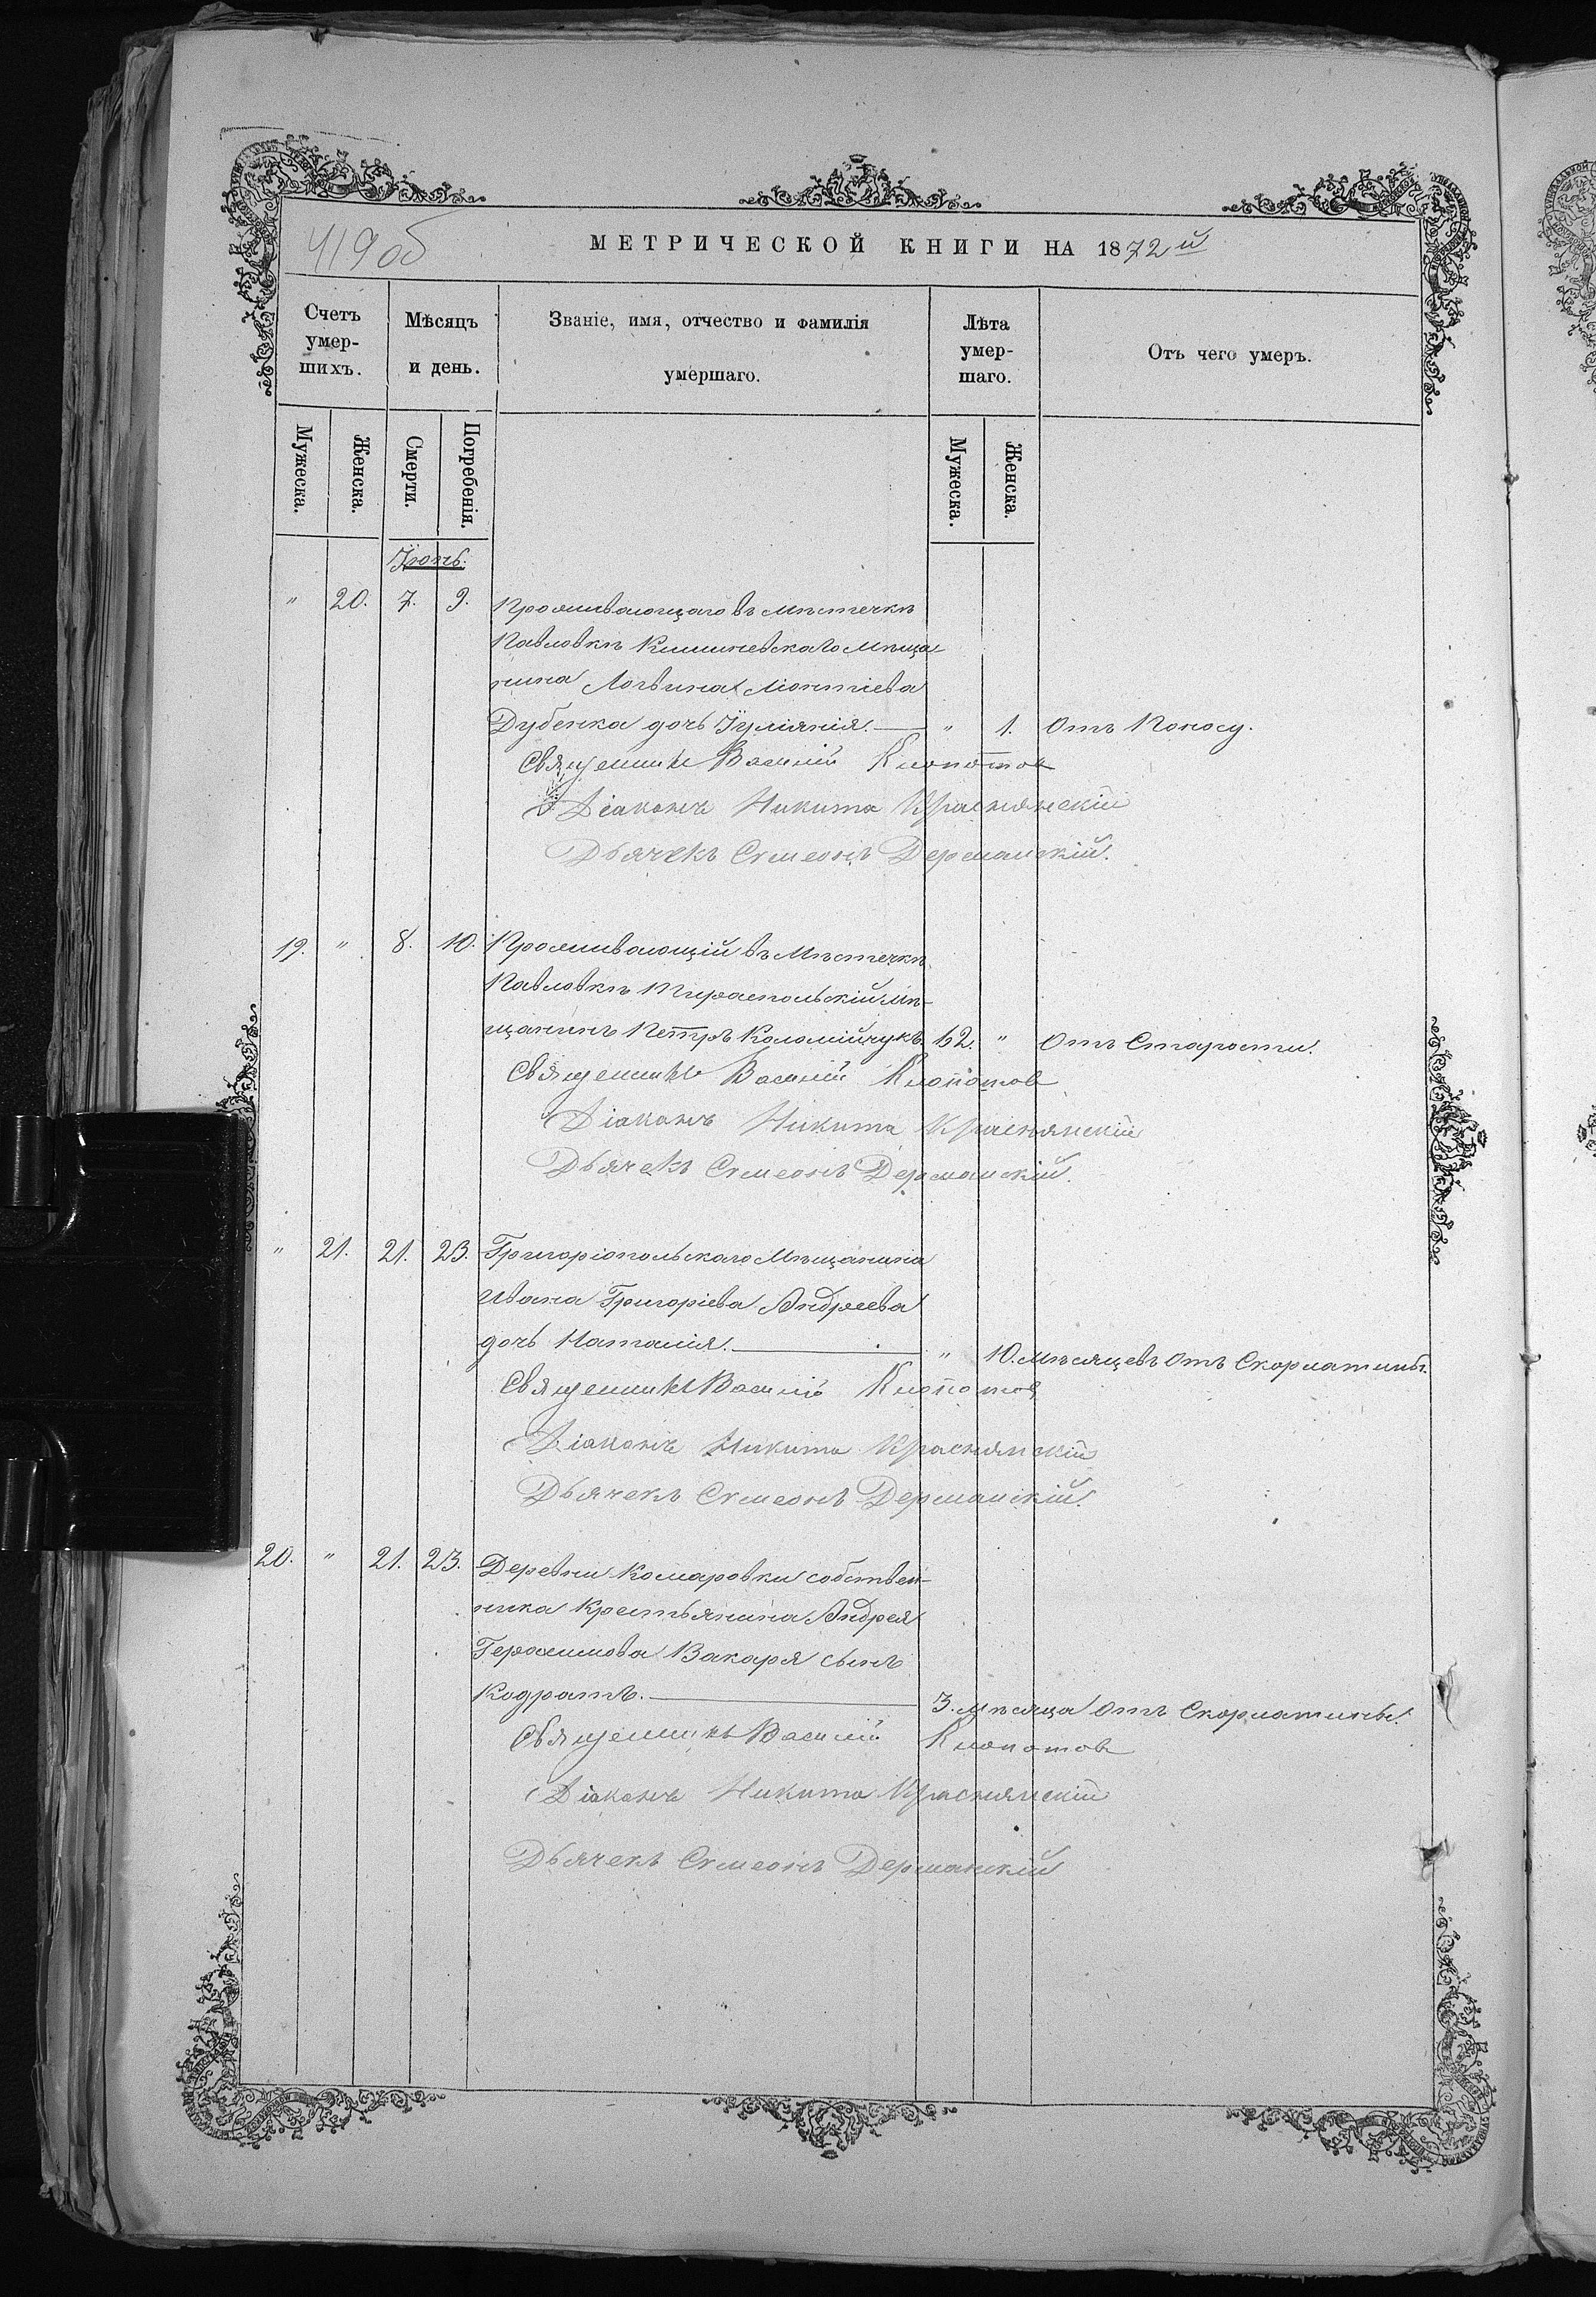 419 об
МЕТРИЧЕСКОЙ КНИГИ НА 1872й
Счетъ умер-шихъ.
Мѣсяцъ и день.
Званіе, имя, отчество и фамилія умершаго.
Лѣта умер-шаго.
Отъ чего умеръ.
Мужеска.
Женска.
Смерти.
Погребенія.
Мужеска.
Женска.
Іюнь.
" 20. 7. 9. Проживающаго въ Мѣстечкѣ
Павловкѣ Кишиневскаго Мѣща
нина Логвина Ліонтіева
Дубенка дочь Іуліянія. " 1. Отъ Поносу.
Священникъ Василій Клопотов
Діаконъ Никита Краснянскій
Дьячекъ Симеонъ Дерманскій.
19. " 8. 10. Проживающій въ Мѣстечкѣ
Павловкѣ Тираспольскій мѣ-
щанинъ Петръ Коломійчукъ. 62. " Отъ Старости.
Священникъ Василій Клопотов
Діаконъ Никита Краснянскій
Дьячекъ Симеонъ Дерманскій.
" 21. 21. 23. Григоріопольскаго Мѣщанина
Ивана Григоріева Андреева
дочь Наталія. " 10. мѣсяцевъ Отъ Скорлатины.
Священникъ Василій Клопотов
Діаконъ Никита Краснянскій
Дьячекъ Симеонъ Дерманскій.
20. " 21. 23. Деревни Комаровки собствен-
ника Крестьянина Андрея
Герасимова Вакаря сынъ
Кодратъ. 3. мѣсяца Отъ Скорлатины.
Священникъ Василій Клопотов
Діаконъ Никита Краснянскій
Дьячекъ Симеонъ Дерманскій